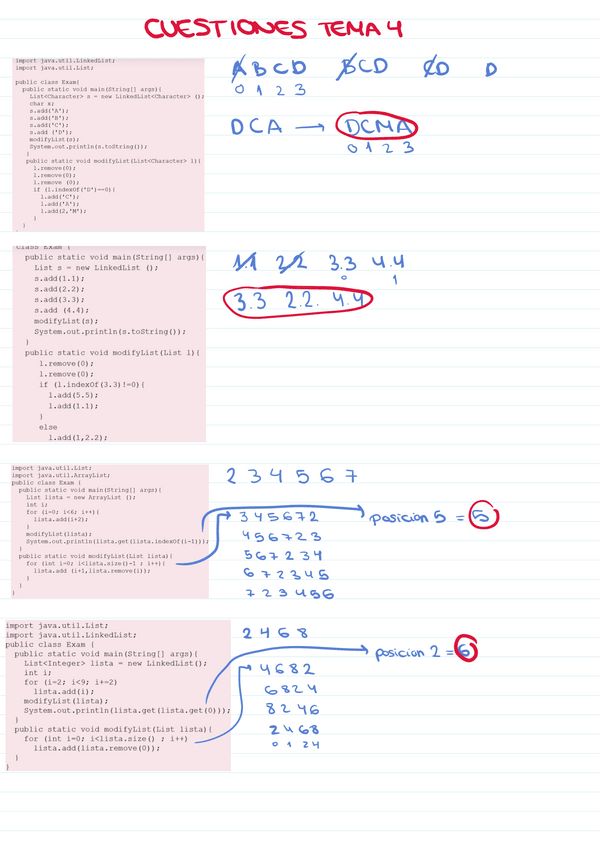 CUESTIONES TEMA 4
import java.util.LinkedList;
import java.util.List;
public class Exam{
public static void main(String[] args){
List<Character> s = new LinkedList<Character> ();
char x;
s.add('A');
s.add('B');
s.add('C');
s.add ('D');
modifyList(s);
System.out.println(s.toString());
}
public static void modifyList(List<Character> l){
l.remove(0);
l.remove(0);
l.remove (0);
if (l.indexOf('D')==0){
l.add('C');
l.add('A');
l.add(2,'M');
}
}
A B C D BCD CD D
0 1 2 3
DCA → DCMA
0 1 2 3
class Exam {
public static void main(String[] args){
List s = new LinkedList ();
s.add(1.1);
s.add(2.2);
s.add(3.3);
s.add (4.4);
modifyList(s);
System.out.println(s.toString());
}
public static void modifyList(List l){
l.remove(0);
l.remove(0);
if (l.indexOf(3.3)!=0){
l.add(5.5);
l.add(1.1);
}
else
l.add(1,2.2);
1.1 2.2 3.3 4.4
0 1
3.3 2.2. 4.4
import java.util.List;
import java.util.ArrayList;
public class Exam {
public static void main(String[] args){
List lista = new ArrayList ();
int i;
for (i=0; i<6; i++){
lista.add(i+2);
}
modifyList(lista);
System.out.println(lista.get(lista.indexOf(i-1)));
}
public static void modifyList(List lista){
for (int i=0; i<lista.size()-1 ; i++){
lista.add (i+1,lista.remove(i));
}
}
}
2 3 4 5 6 7
3 4 5 6 7 2 → posicion 5 = 5
4 5 6 7 2 3
5 6 7 2 3 4
6 7 2 3 4 5
7 2 3 4 5 6
import java.util.List;
import java.util.LinkedList;
public class Exam {
public static void main(String[] args){
List<Integer> lista = new LinkedList();
int i;
for (i=2; i<9; i+=2)
lista.add(i);
modifyList(lista);
System.out.println(lista.get(lista.get(0)));
}
public static void modifyList(List lista){
for (int i=0; i<lista.size() ; i++)
lista.add(lista.remove(0));
}
}
2 4 6 8
→ posicion 2 = 6
4 6 8 2
6 8 2 4
8 2 4 6
2 4 6 8
0 1 2 4